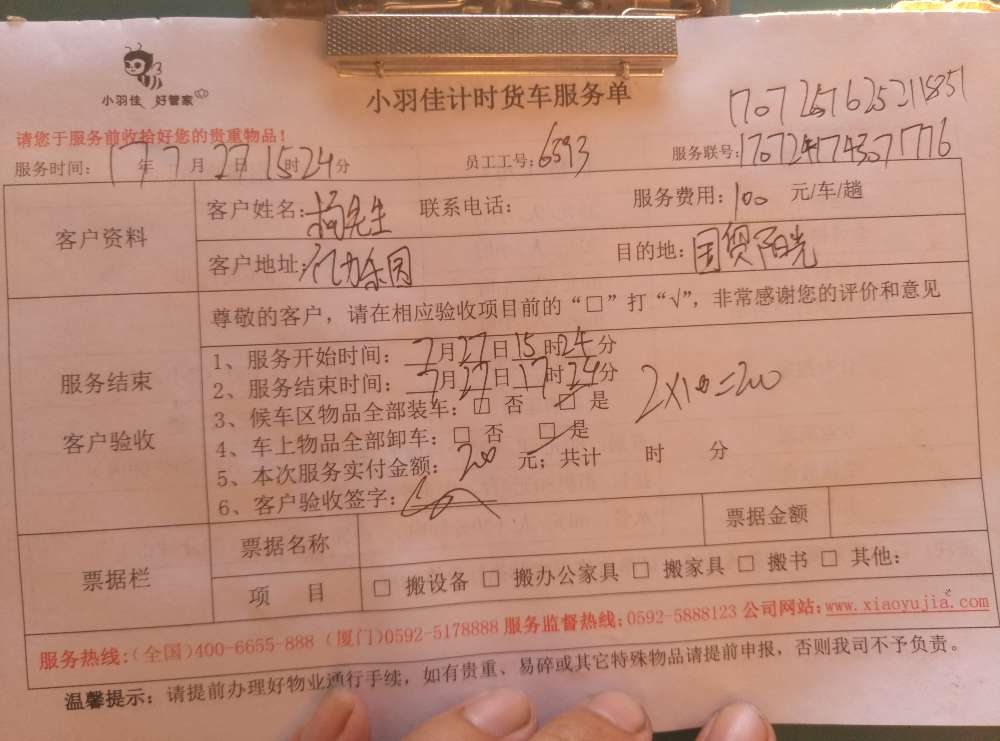 小羽佳 好管家
小羽佳计时货车服务单
请您于服务前收拾好您的贵重物品！
服务时间: 17年7月27日15时24分 员工工号: 6593 服务联号:
客户资料
客户姓名: 杨先生 联系电话: 服务费用: 100 元/车/趟
客户地址: 乐园 目的地: 国贸阳光
服务结束
客户验收
尊敬的客户，请在相应验收项目前的“□”打“√”，非常感谢您的评价和意见
1、服务开始时间: 7月27日15时24分
2、服务结束时间: 7月27日17时24分
3、候车区物品全部装车: □ 否 □ 是
2×100=200
4、车上物品全部卸车: □ 否 □ 是
5、本次服务实付金额: 200 元; 共计 时 分
6、客户验收签字:
票据栏
票据名称 票据金额
项 目 □ 搬设备 □ 搬办公家具 □ 搬家具 □ 搬书 □ 其他:
服务热线:(全国)400-6655-888 (厦门)0592-5178888 服务监督热线:0592-5888123 公司网站:www.xiaoyujia.com
温馨提示: 请提前办理好物业通行手续，如有贵重、易碎或其它特殊物品请提前申报，否则我司不予负责。